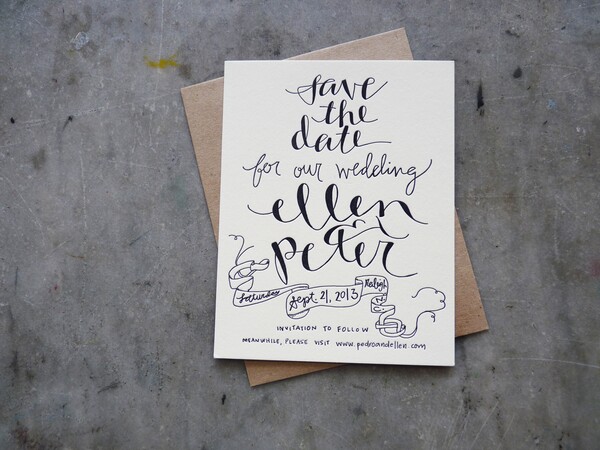 save
the
date
for our wedding
ellen
&
peter
Saturday Sept. 21, 2013 Raleigh NC
INVITATION TO FOLLOW
MEANWHILE, PLEASE VISIT www.pedroandellen.com